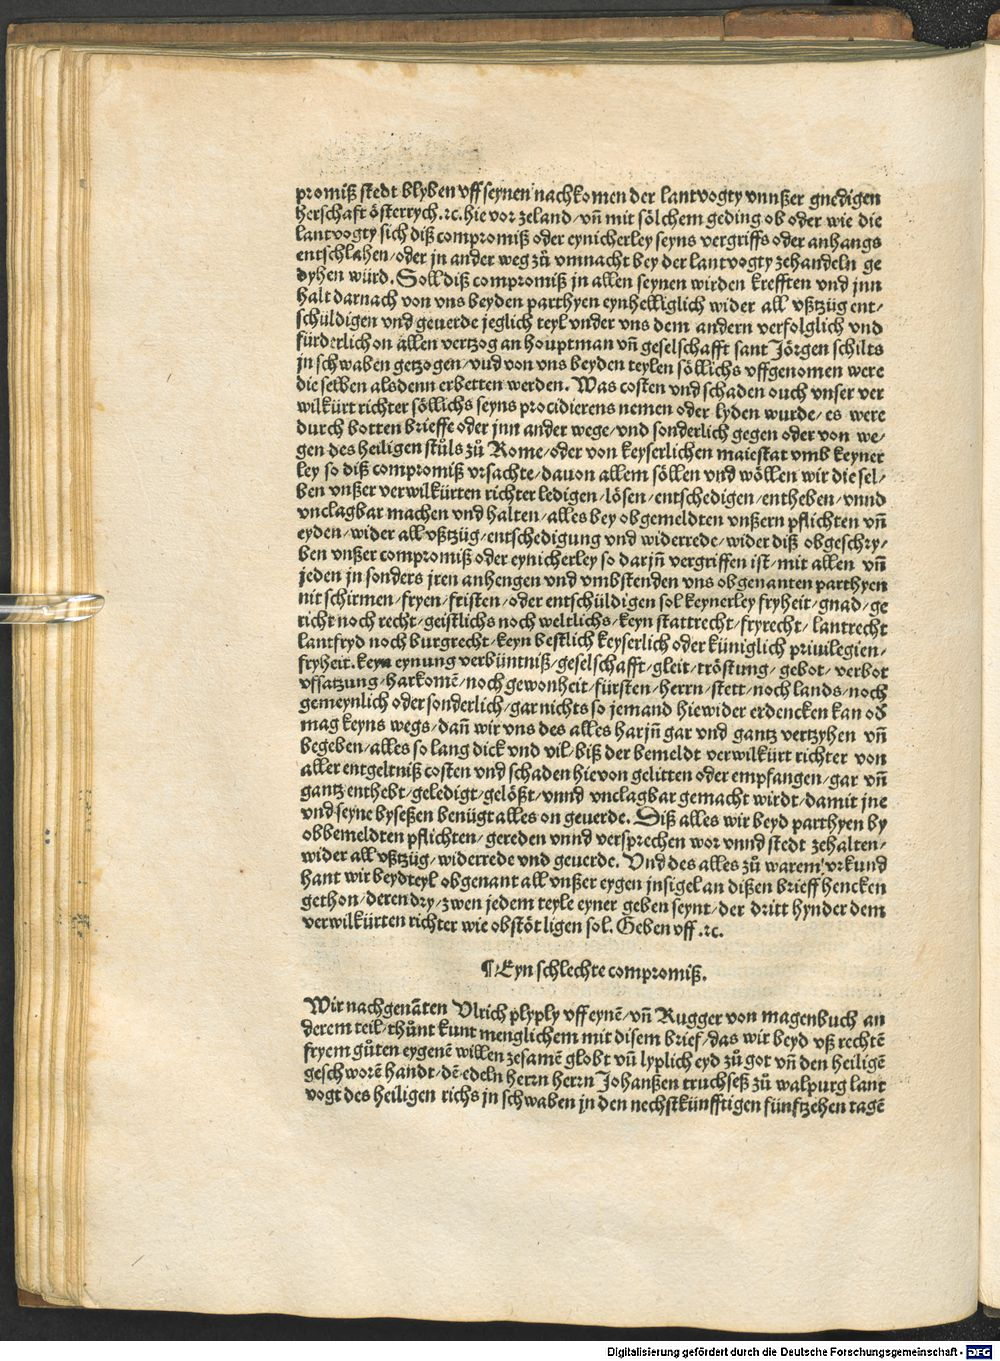 promiß stedt blyben vff seynen nachkomen der lantvogty vnnßer gnedigen
herschaft österrych .ꝛc. hie vor zeland / vn̄ mit sölchem geding ob oder wie die
lantvogty sich diß compromiß oder eynicherley seyns vergriffs oder anhangs
entschlahen / oder jn ander weg zů vmnacht bey der lantvogty zehandeln ge
dyhen würd. Soll diß compromiß jn allen seynen wirden krefften vnd jnn
halt darnach von vns beyden parthyen eynhelliglich wider all vßtzüg ent⸗
schüldigen vnd geuerde jeglich teyl vnder vns dem andern verfolglich vnd
fürderlich on allen vertzog an houptman vn̄ geselschafft sant Jörgen schilts
jn schwaben getzogen / vud von vns beyden teylen söllichs vffgenomen were
die selben alsdenn erbetten werden. Was costen vnd schaden ouch vnser ver
wilkürt richter söllichs seyns procidierens nemen oder lyden wurde / es were
durch botten brieffe oder jnn ander wege / vnd sonderlich gegen oder von we⸗
gen des heiligen stůls zů Rome / oder von keyserlichen maiestat vmb keyner
ley so diß compromiß vrsachte / dauon allem söllen vnd wöllen wir die sel⸗
ben vnßer verwilkürten richter ledigen / lösen / entschedigen / entheben / vnnd
vnclagbar machen vnd halten / alles bey obgemeldten vnßern pflichten vn̄
eyden / wider all vßtzüg / entschedigung vnd widerrede / wider diß obgeschry⸗
ben vnßer compromiß oder eynicherley so darjn̄ vergriffen ist / mit allen vn̄
jeden jn sonders jren anhengen vnd vmbstenden vns obgenanten parthyen
nit schirmen / fryen / fristen / oder entschüldigen sol keynerley fryheit / gnad / ge
richt noch recht / geistlichs noch weltlichs / keyn stattrecht / fryrecht / lantrecht
lantfryd noch burgrecht / keyn bestlich keyserlich oder küniglich priuilegien /
fryheit. keyn eynung verbüntniß / geselschafft / gleit / tröstung / gebot / verbot
vffsatzung / harkomē / noch gewonheit / fürsten / herrn / stett / noch lands / noch
gemeynlich oder sonderlich / gar nichts so jemand hiewider erdencken kan od̄
mag keyns wegs / dan̄ wir vns des alles harjn̄ gar vnd gantz vertzyhen vn̄
begeben / alles so lang dick vnd vil / biß der bemeldt verwilkürt richter von
aller entgeltniß costen vnd schaden hievon gelitten oder empfangen / gar vn̄
gantz enthebt / geledigt / gelößt / vnnd vnclagbar gemacht wirdt / damit jne
vnd seyne byseßen benügt alles on geuerde. Diß alles wir beyd parthyen by
obbemeldten pflichten / gereden vnnd versprechen wor vnnd stedt zehalten /
wider all vßtzüg / widerrede vnd geuerde. Vnd des alles zů warem vrkund
hant wir beyd teyl obgenant all vnßer eygen jnsigel an dißen brieff hencken
gethon / deren dry / zwen jedem teyle eyner geben seynt / der dritt hynder dem
verwilkürten richter wie obstöt ligen sol. Geben vff .ꝛc.
¶ Eyn schlechte compromiß.
Wir nachgenāten Vlrich plyply vff eynē / vn̄ Rugger von magenbuch an
derem teil / thůnt kunt menglichem mit disem brief / das wir beyd vß rechtē
fryem gůten eygenē willen zesamē globt vn̄ lyplich eyd zů got vn̄ den heiligē
geschworē handt / dē edeln herrn herrn Johanßen truchseß zů walpurg lant
vogt des heiligen richs jn schwaben jn den nechstkünfftigen fünftzehen tagē
Digitalisierung gefördert durch die Deutsche Forschungsgemeinschaft - DFG